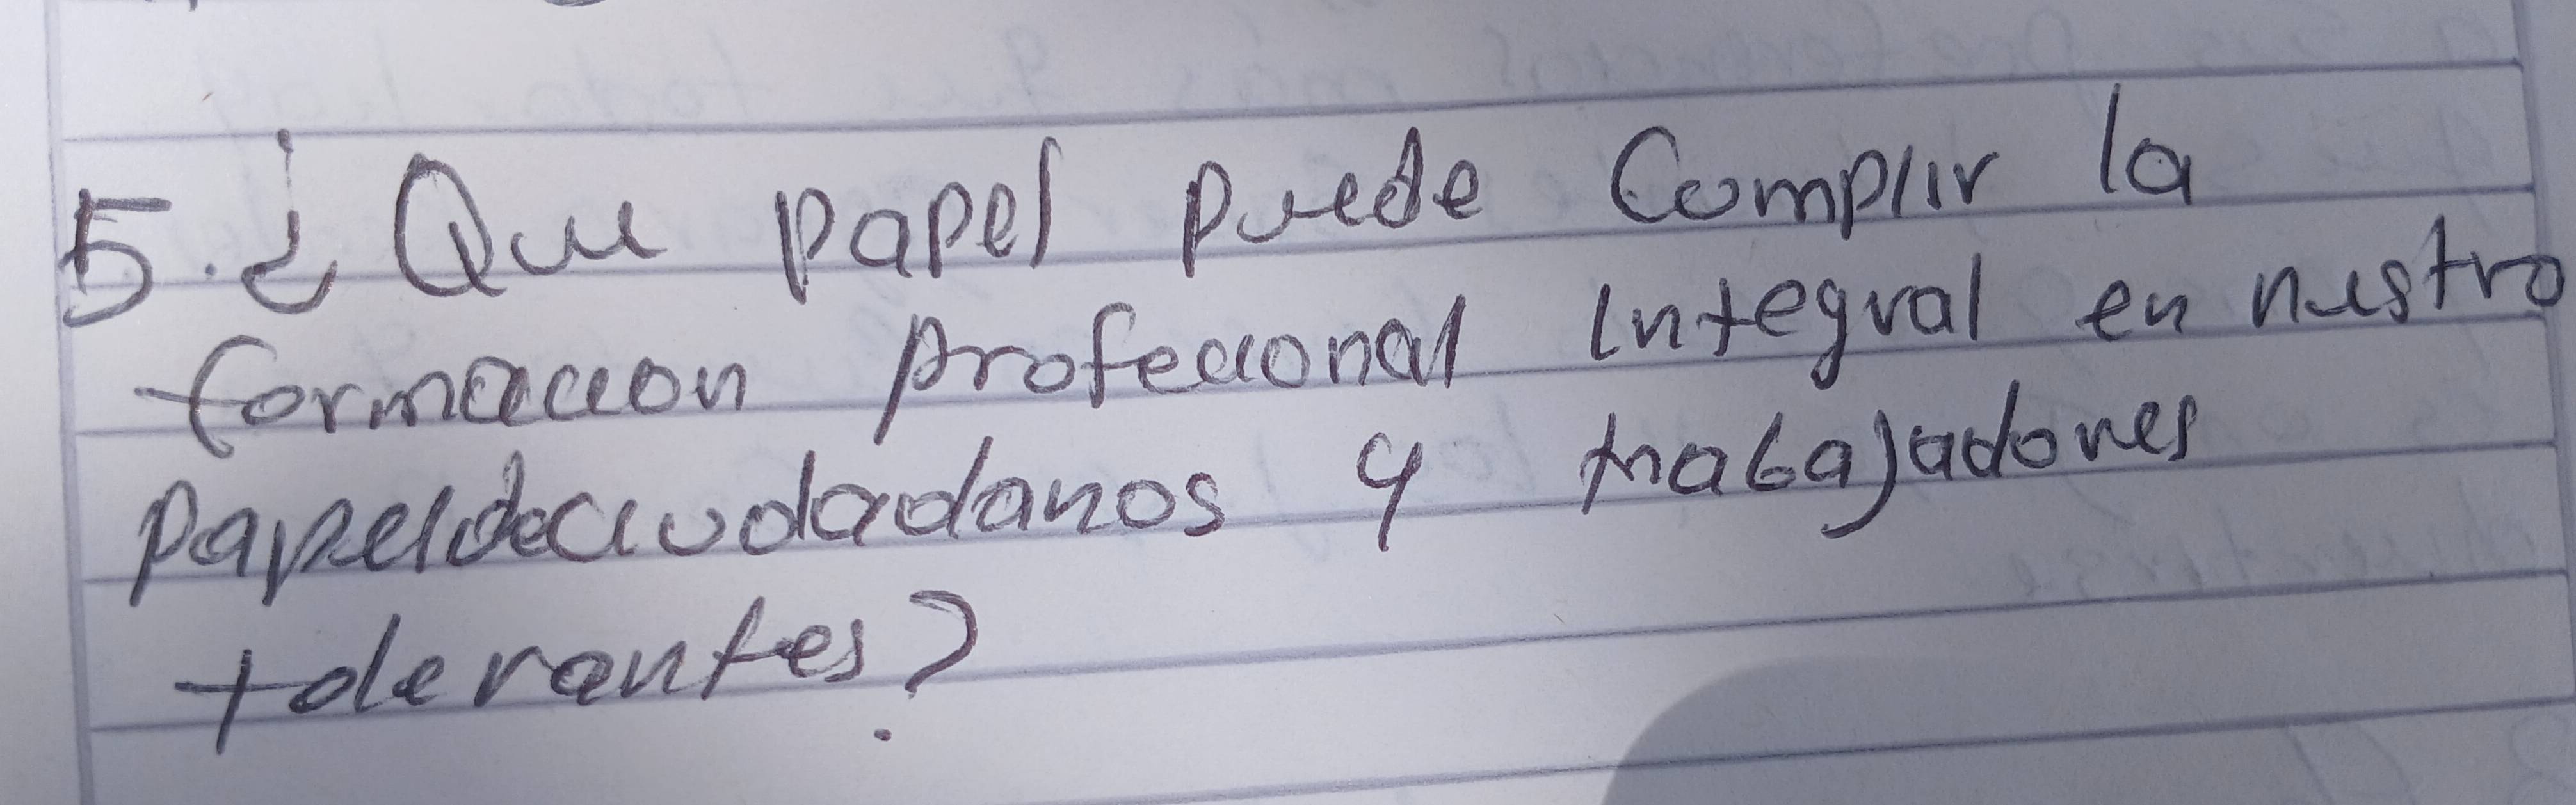 5. ¿Que papel puede Cumplir la
formacion profecional integral en nustro
papel de ciudadanos y trabajadores
tolerantes?